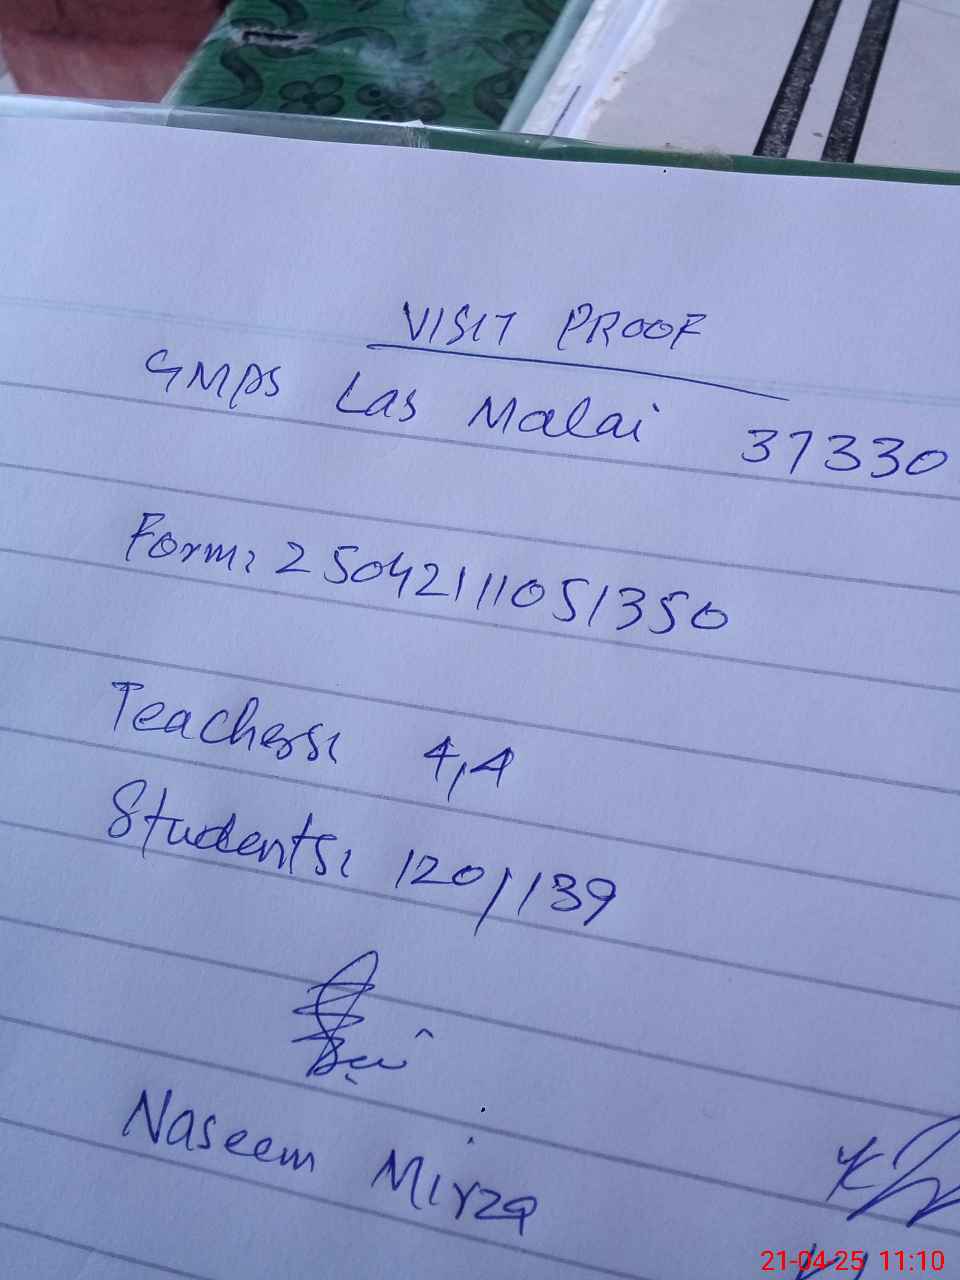 VISIT PROOF
GMPS Las Malai 37330
Form: 25042111051350
Teachers: 4,4
Students: 120/139
Naseem Mirza
21-04-25 11:10